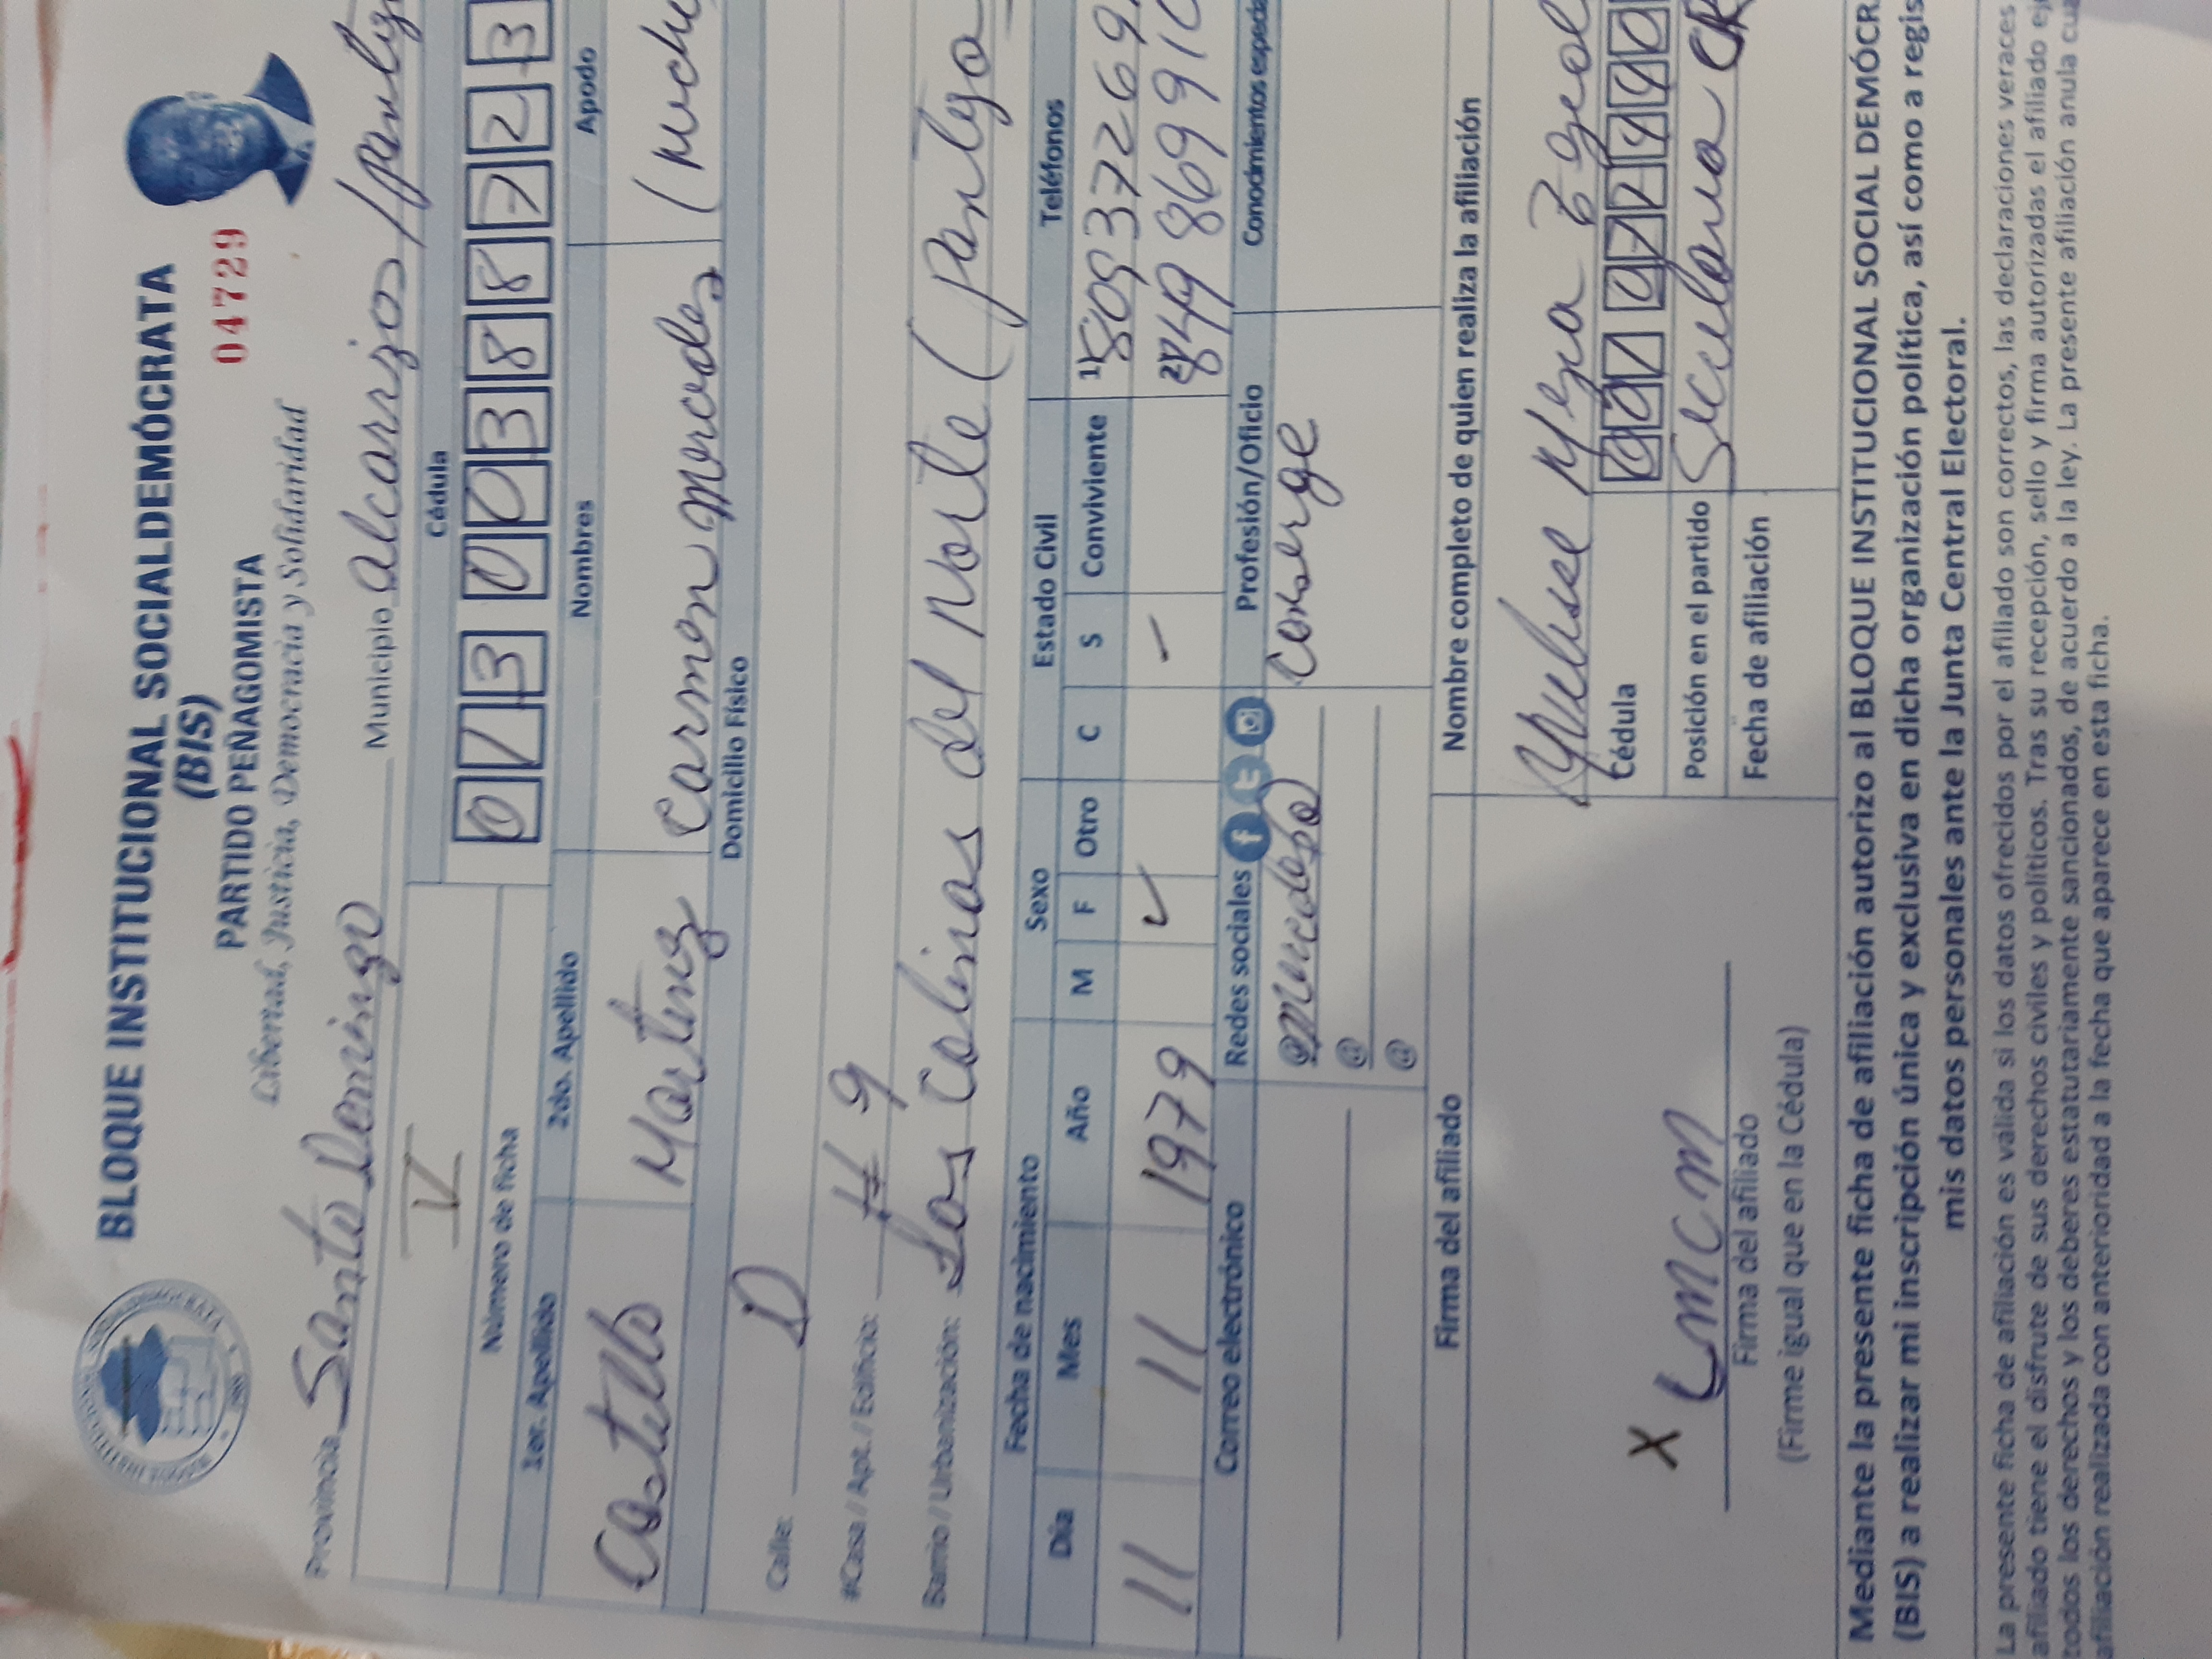 BLOQUE INSTITUCIONAL SOCIALDEMÓCRATA
(BIS)
04729
PARTIDO PEÑAGOMISTA
Libertad, Justicia, Democracia y Solidaridad
Provincia Santo Domingo Municipio alcarrizos
V
Número de ficha Cédula
0 1 3 0 0 3 8 8 7 2 3
1er. Apellido 2do. Apellido Nombres Apodo
Castillo Martinez Carmen mercedes
Domicilio Físico
Calle: D
#Casa / Apt. / Edificio: # 9
Barrio / Urbanización: Las Colinas del Norte (
Fecha de nacimiento Sexo Estado Civil Teléfonos
Día Mes Año M F Otro C S Conviviente
1) 80937269
11 11 1979 ✓ –
2) 849869910
Correo electrónico Redes sociales Profesión/Oficio Conocimientos especia
@ Conserge
@
@
Firma del afiliado Nombre completo de quien realiza la afiliación
X
CMCM
Firma del afiliado
(Firme igual que en la Cédula)
Cédula
Posición en el partido
Fecha de afiliación
Mediante la presente ficha de afiliación autorizo al BLOQUE INSTITUCIONAL SOCIAL DEMÓCR
(BIS) a realizar mi inscripción única y exclusiva en dicha organización política, así como a regis
mis datos personales ante la Junta Central Electoral.
La presente ficha de afiliación es válida si los datos ofrecidos por el afiliado son correctos, las declaraciones veraces
afiliado tiene el disfrute de sus derechos civiles y políticos. Tras su recepción, sello y firma autorizadas el afiliado ej
todos los derechos y los deberes estatutariamente sancionados, de acuerdo a la ley. La presente afiliación anula cua
afiliación realizada con anterioridad a la fecha que aparece en esta ficha.